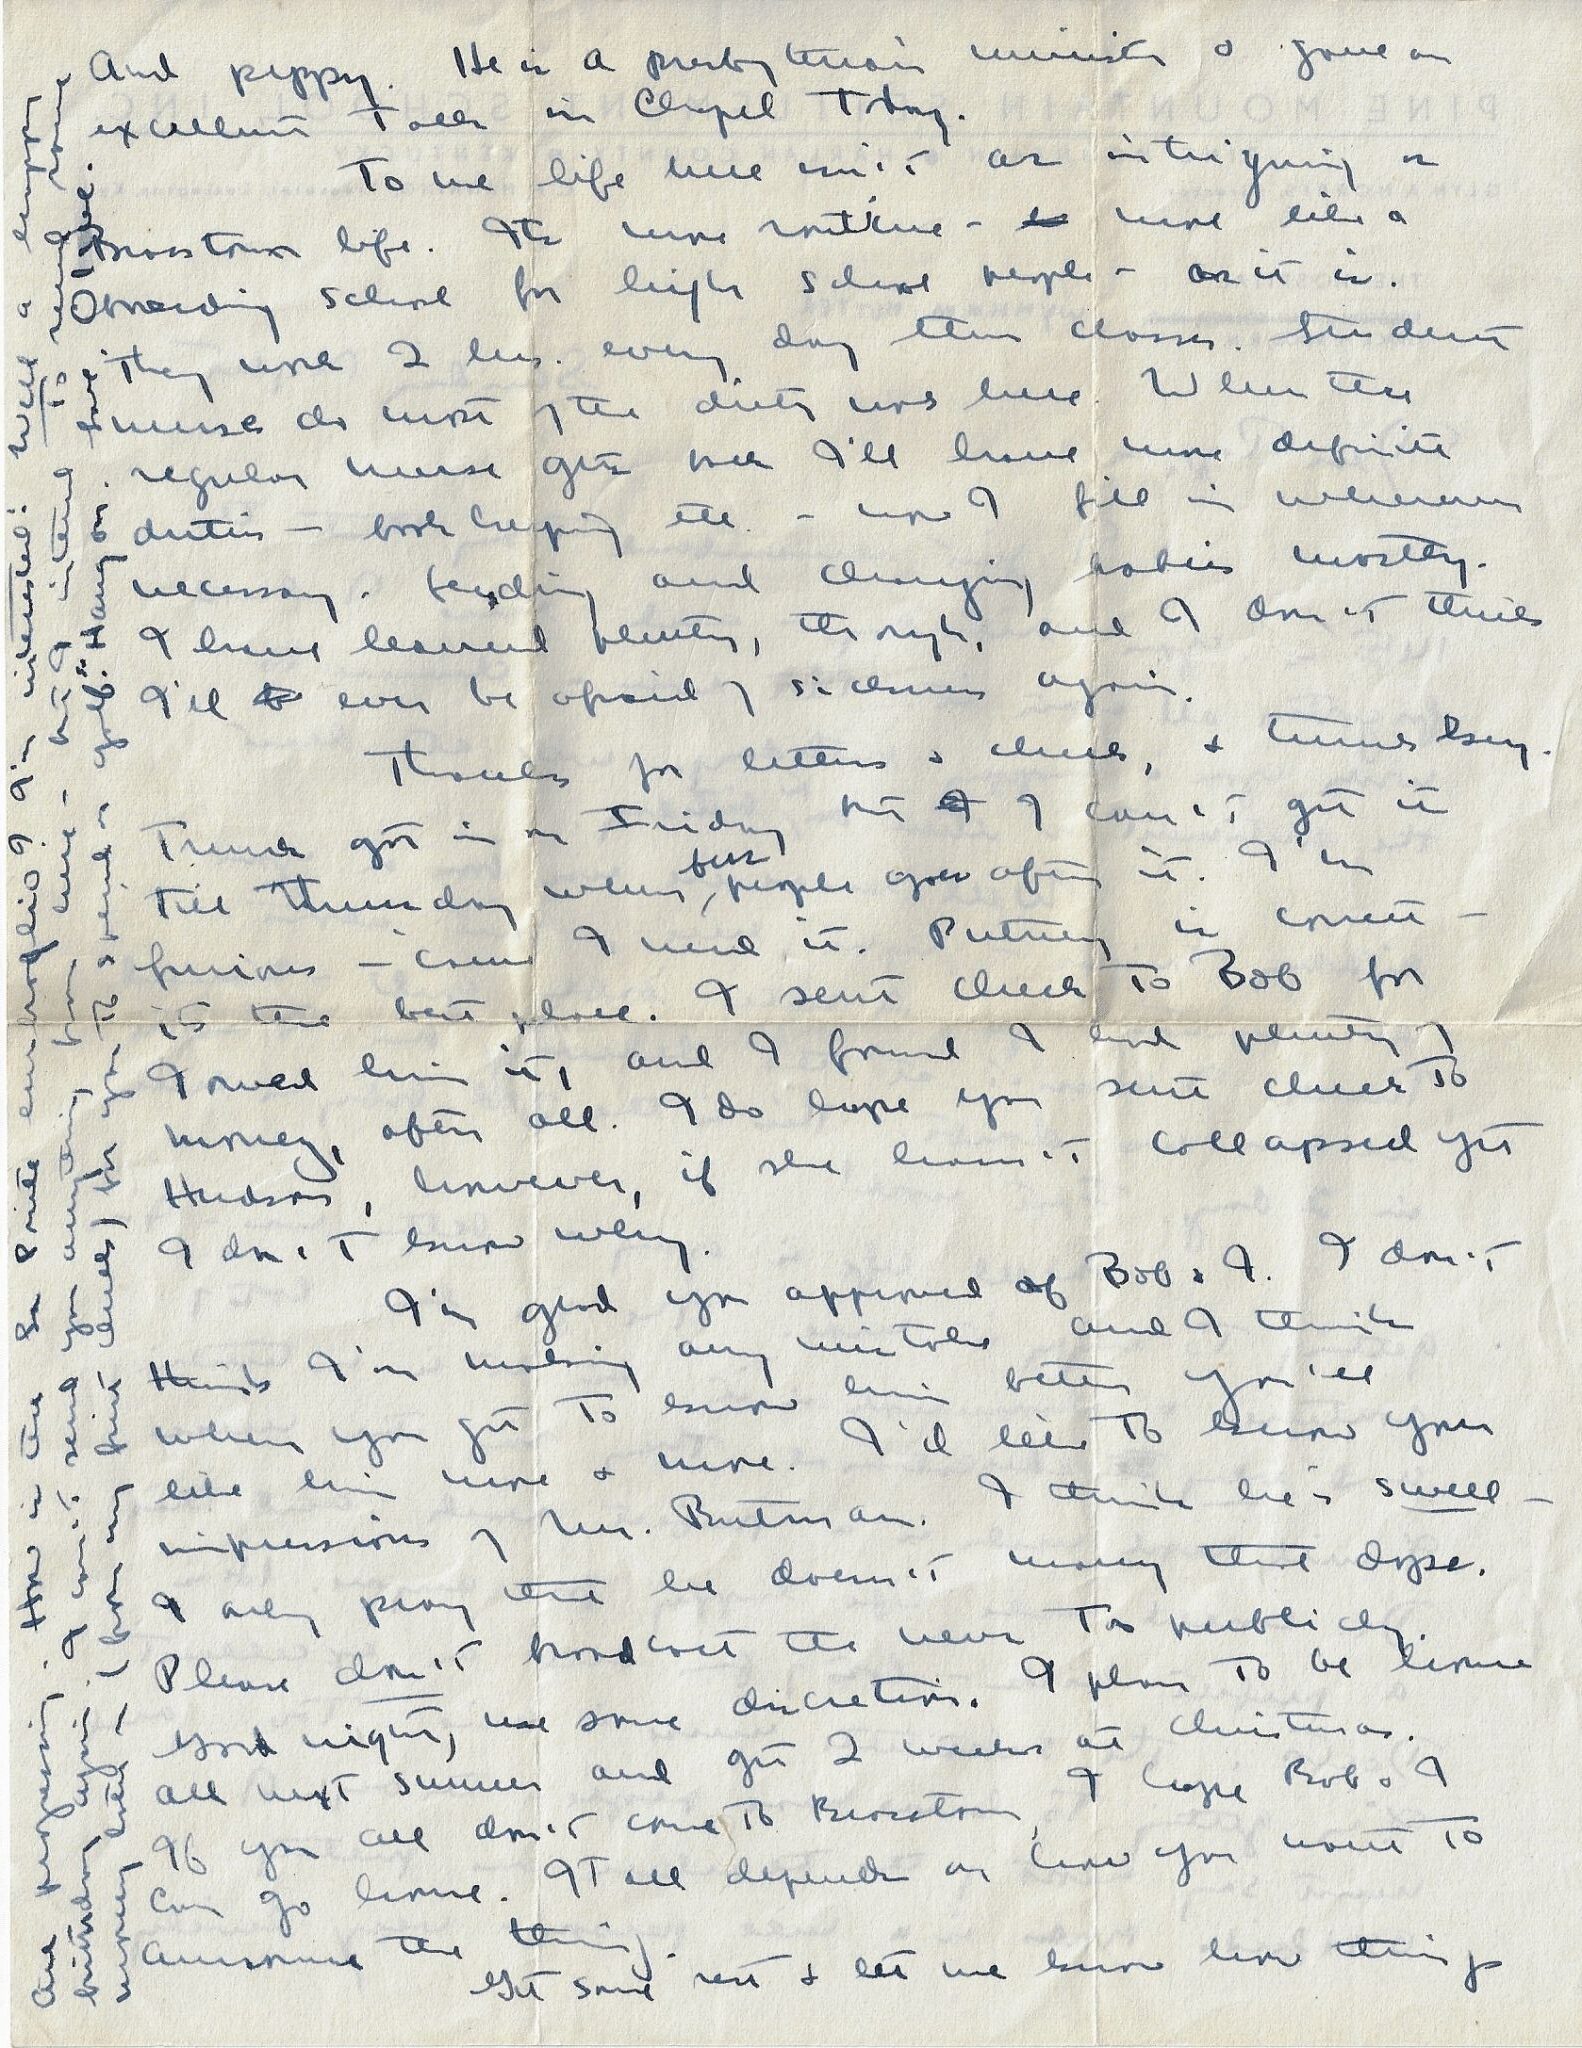 And peppy. He is a presbyterian minister & gave an
excellent talk in Chapel today.
To me life here isn't as intriguing as
Brasstown life. Its more routine - more like a
boarding school for high school people - as it is.
They work 2 hrs. every day then classes. Student
nurses do most of the dirty work here. When the
regular nurse gets back I'll have more definite
duties - book keeping etc. - now I fill in wherever
necessary. feeding and changing babies mostly.
I have learned plenty, though, and I don't think
I'll ever be afraid of sickness again.
Thanks for letters & check, & trunk key.
Trunk got in on Friday but I can't get it
till Thursday when few people go after it. I'm
furious - 'cause I need it. Putney is correct -
its the best place. I sent check to Bob for
I owed him it, and I found I had plenty of
money, after all. I do hope you sent check to
Hudson, however, if she hasn't collapsed yet
I don't know why.
I'm glad you approved of Bob & I. I don't
think I'm making any mistake and I think
when you get to know him better you'll
like him more & more. I'd like to know your
impressions of Mr. Bidstrup. I think he's swell -
I only pray that he doesn't marry that dope.
Please don't broadcast the news too publicly.
Good night, use some discretion. I plan to be home
all next summer and get 2 weeks at Christmas.
If you all don't come to Brasstown, I hope Bob & I
can go home. It all depends on how you want to
announce the thing.
Get some rest & let me know how things
are progressing. How is the La Pride embroglio? I'm interested. Well a happy
birthday again. I can't send you anything from here - but I intend to send some
money out (from my first check) for you to spend on golf. Hang on. Love